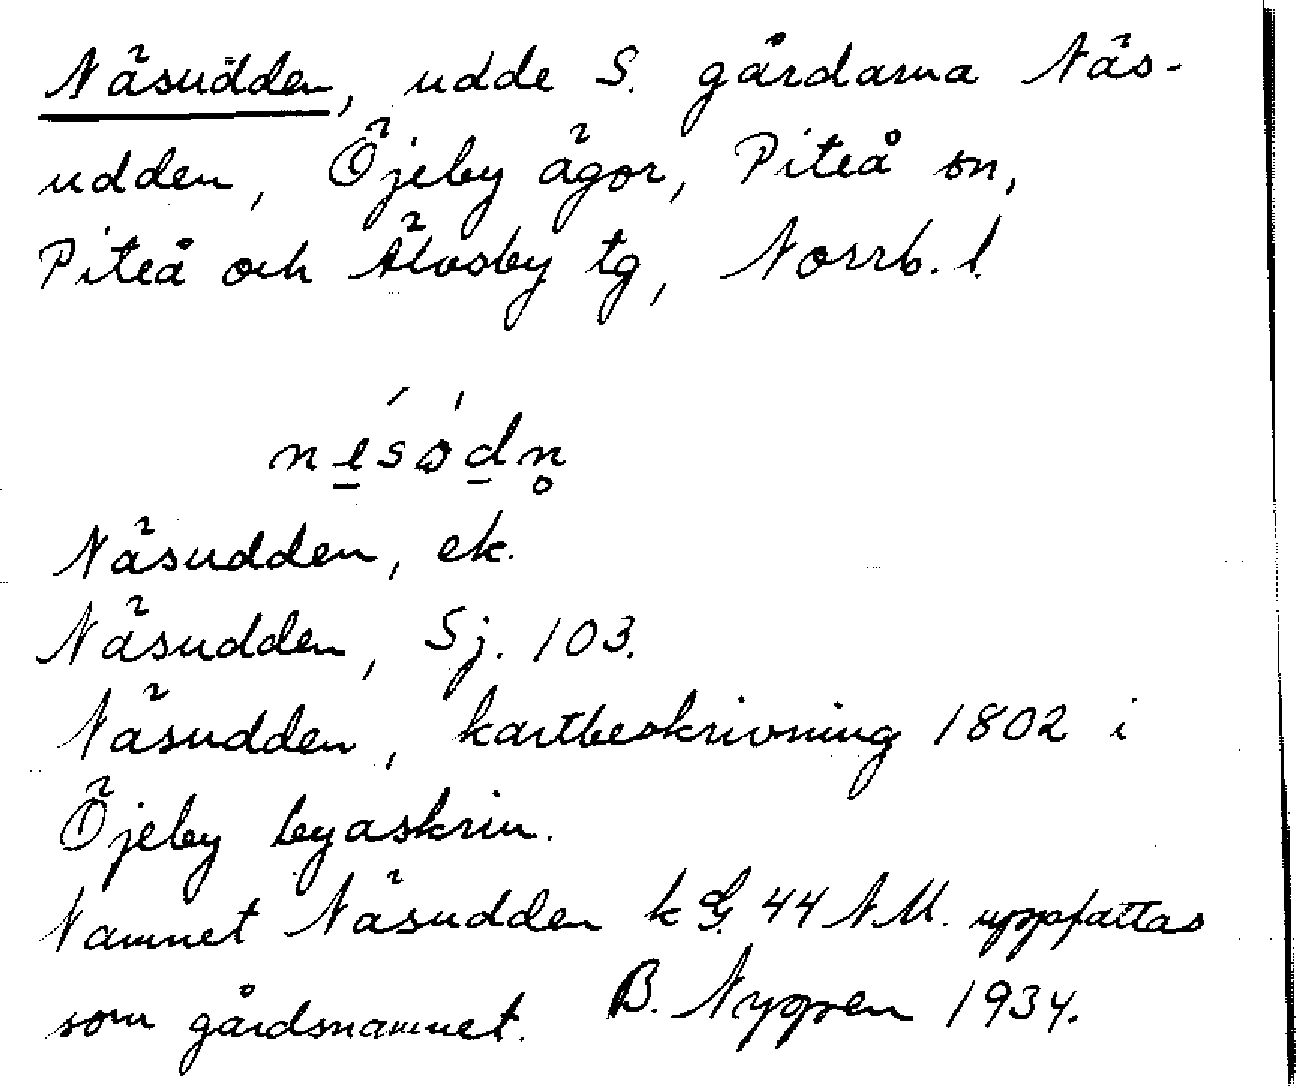 Näsudden, udde S. gårdarna Näs-
udden, Öjeby ägor, Piteå sn,
Piteå och Älvsby tg, Norrb. l.
Näsudden, ek.
Näsudden, Sj. 103.
Näsudden, kartbeskrivning 1802 i
Öjeby byaskrin.
Namnet Näsudden k G. 44 N.M. uppfattas
som gårdsnamnet. B. Nygren 1934.